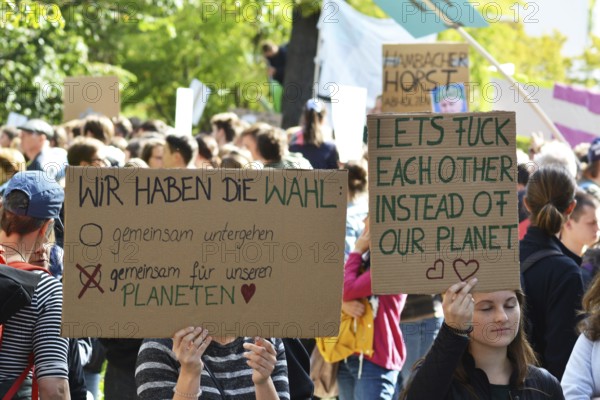 HAMBACHER
HORST
ABHOLZEN
WIR HABEN DIE WAHL:
gemeinsam untergehen
gemeinsam für unseren
PLANETEN
LETS FUCK
EACH OTHER
INSTEAD OF
OUR PLANET